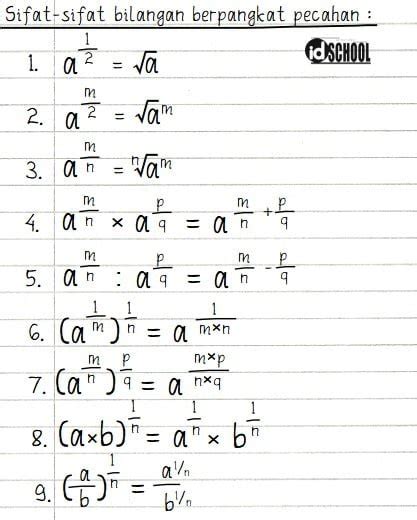 Sifat-sifat bilangan berpangkat pecahan :
idSCHOOL
1. a^(1/2) = √a
2. a^(m/2) = √a^m
3. a^(m/n) = ⁿ√a^m
4. a^(m/n) × a^(p/q) = a^(m/n + p/q)
5. a^(m/n) : a^(p/q) = a^(m/n - p/q)
6. (a^(1/m))^(1/n) = a^(1/(m×n))
7. (a^(m/n))^(p/q) = a^((m×p)/(n×q))
8. (a×b)^(1/n) = a^(1/n) × b^(1/n)
9. (a/b)^(1/n) = a^(1/n)/b^(1/n)